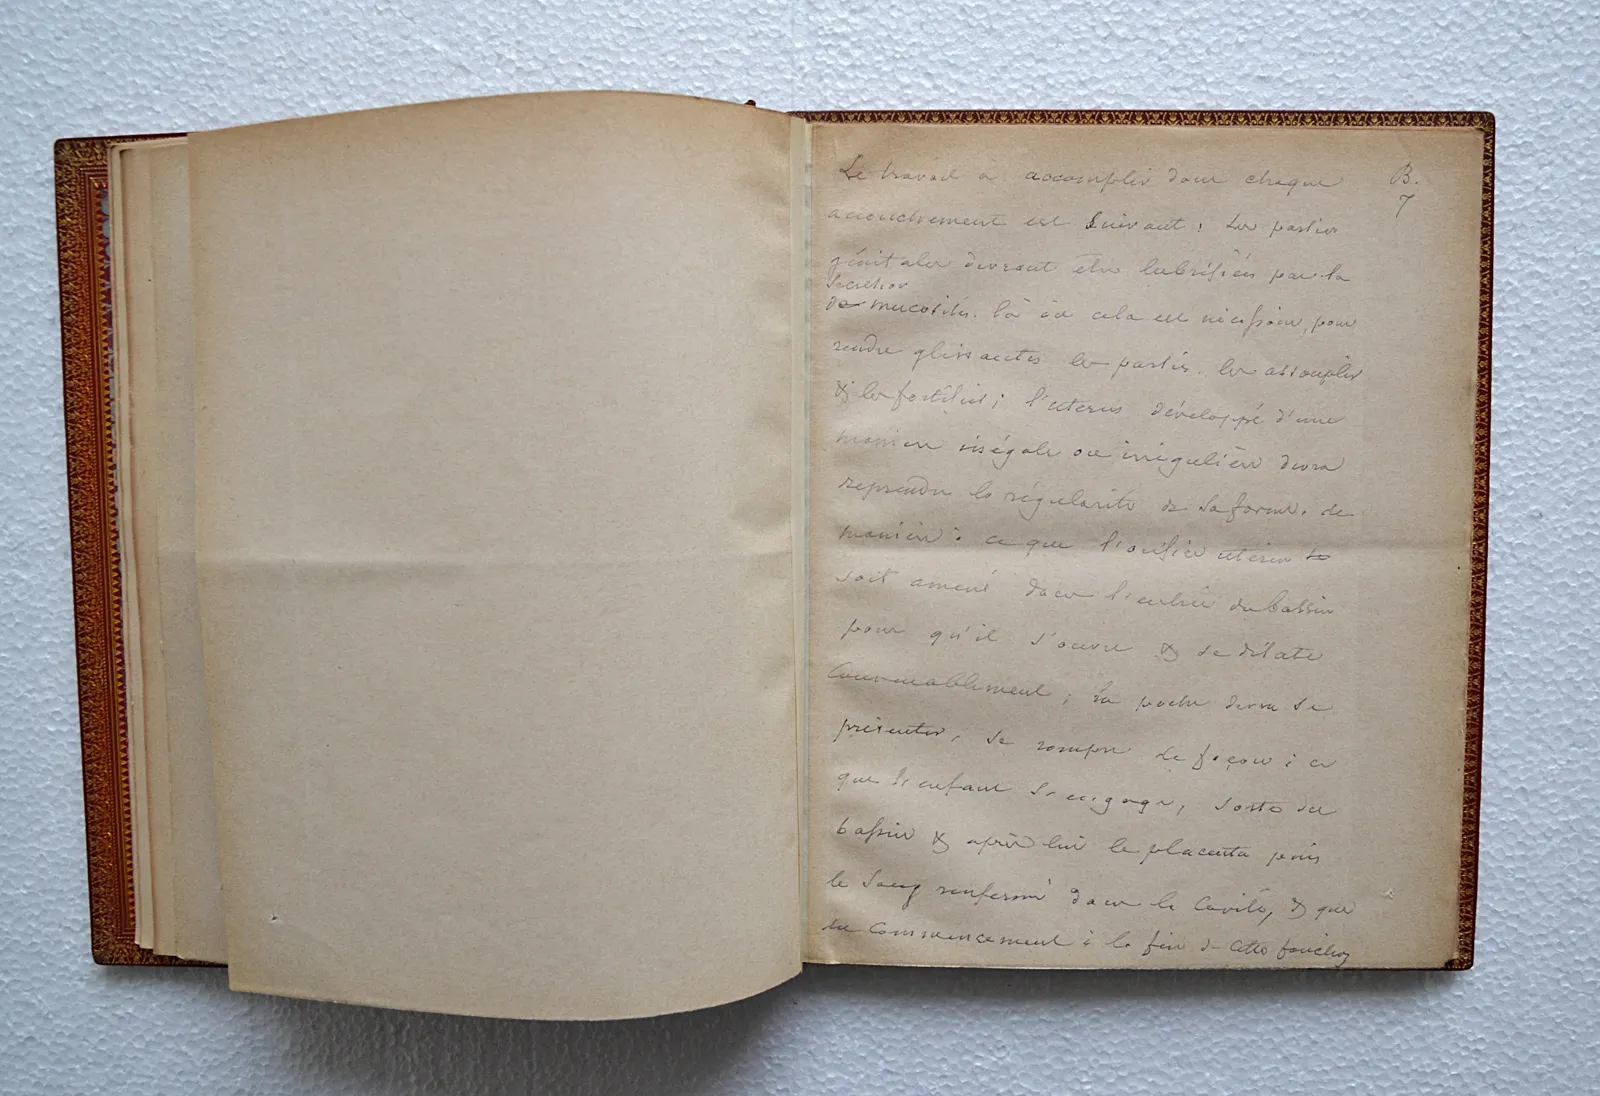 Le travail à accomplir dans chaque
B.
7
accouchement est suivant : Les parties
génitales devront être lubréfiées par la
secretion
de mucosités. là où cela est nécessaire, pour
rendre glissantes les parties. les assouplir
& les fortifier ; l'uterus développé d'une
manière inégale ou irrégulière devra
reprendre la régularité de sa forme. de
manière à ce que l'orifice uterin
soit amené dans l'entrée du bassin
pour qu'il s'ouvre & se dilate
convenablement ; la poche devra se
présenter, se rompre de façon à ce
que l'enfant s'engage, sorte du
bassin & après lui le placenta puis
le sang renfermé dans la cavité, & que
du commencement à la fin de cette fonction